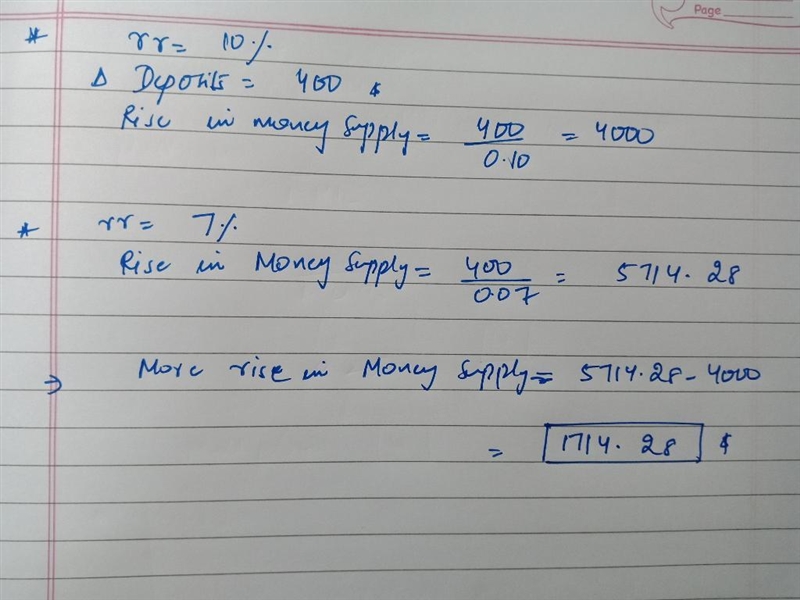 Page
* rr = 10%
Δ Deposits = 400 $
Rise in money supply = 400/0.10 = 4000
* rr = 7%
Rise in Money Supply = 400/0.07 = 5714.28
⇒ More rise in Money Supply = 5714.28 - 4000
= 1714.28 $